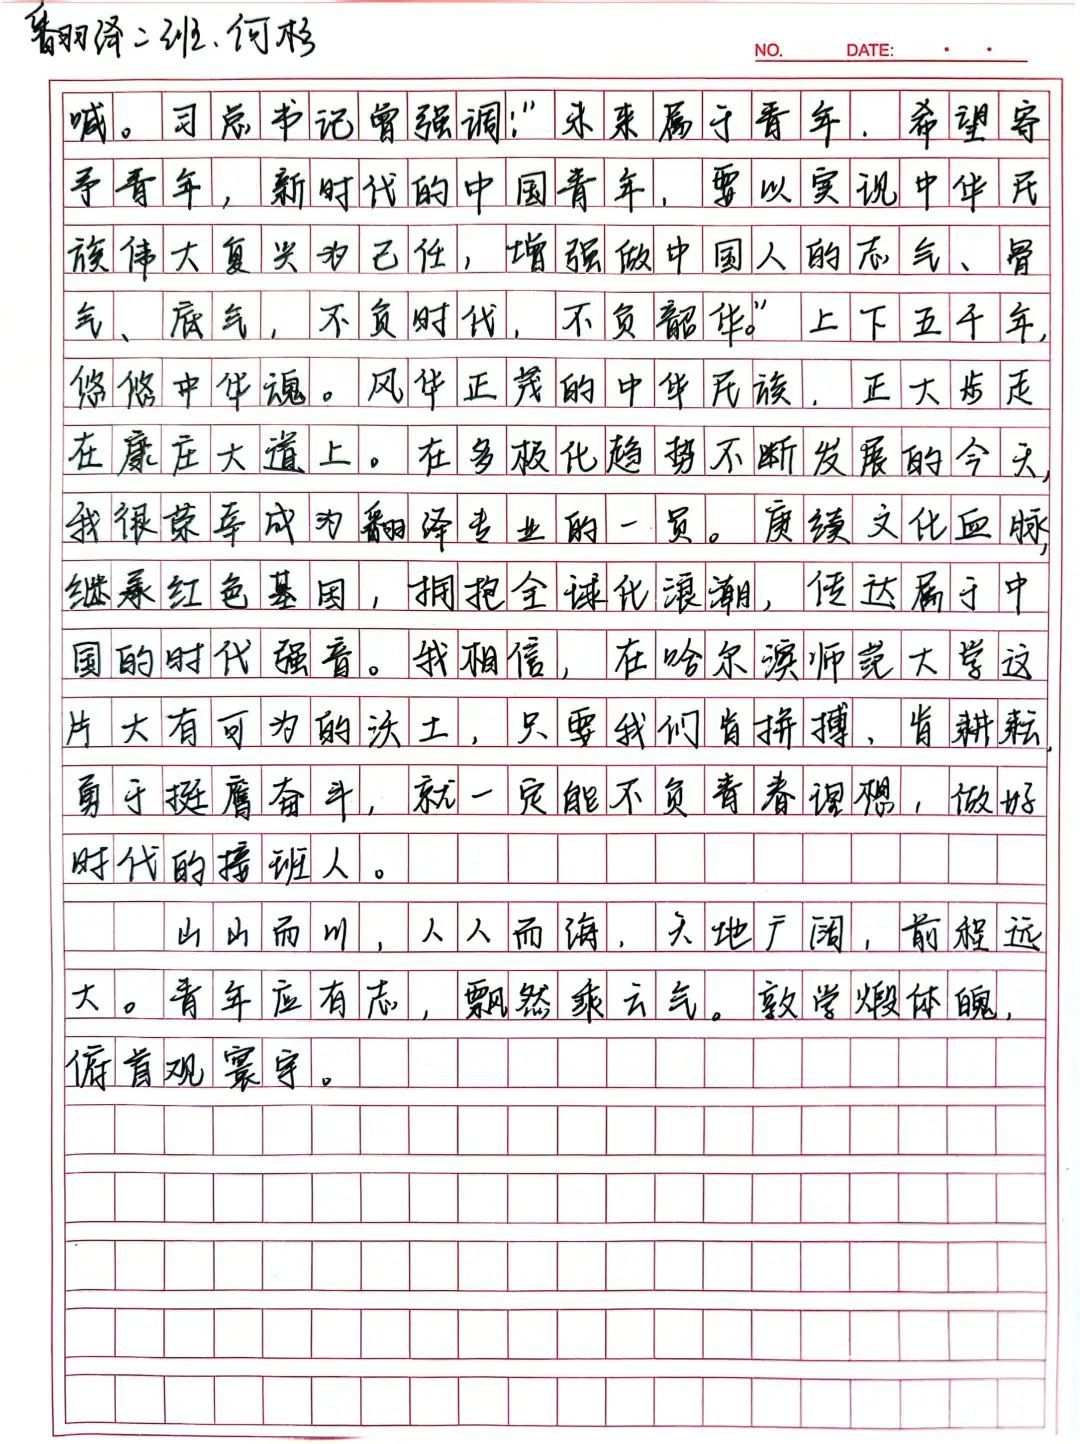 翻译二班.何杉
NO. DATE: · ·
喊。习总书记曾强调:“未来属于青年,希望寄
予青年,新时代的中国青年,要以实现中华民
族伟大复兴为己任,增强做中国人的志气、骨
气、底气,不负时代,不负韶华。”上下五千年,
悠悠中华魂。风华正茂的中华民族,正大步走
在康庄大道上。在多极化趋势不断发展的今天,
我很荣幸成为翻译专业的一员。赓续文化血脉,
继承红色基因,拥抱全球化浪潮,传达属于中
国的时代强音。我相信,在哈尔滨师范大学这
片大有可为的沃土,只要我们肯拼搏、肯耕耘,
勇于挺膺奋斗,就一定能不负青春理想,做好
时代的接班人。
山山而川,人人而海,天地广阔,前程远
大。青年应有志,飘然乘云气。敦学煅体魄,
俯首观寰宇。